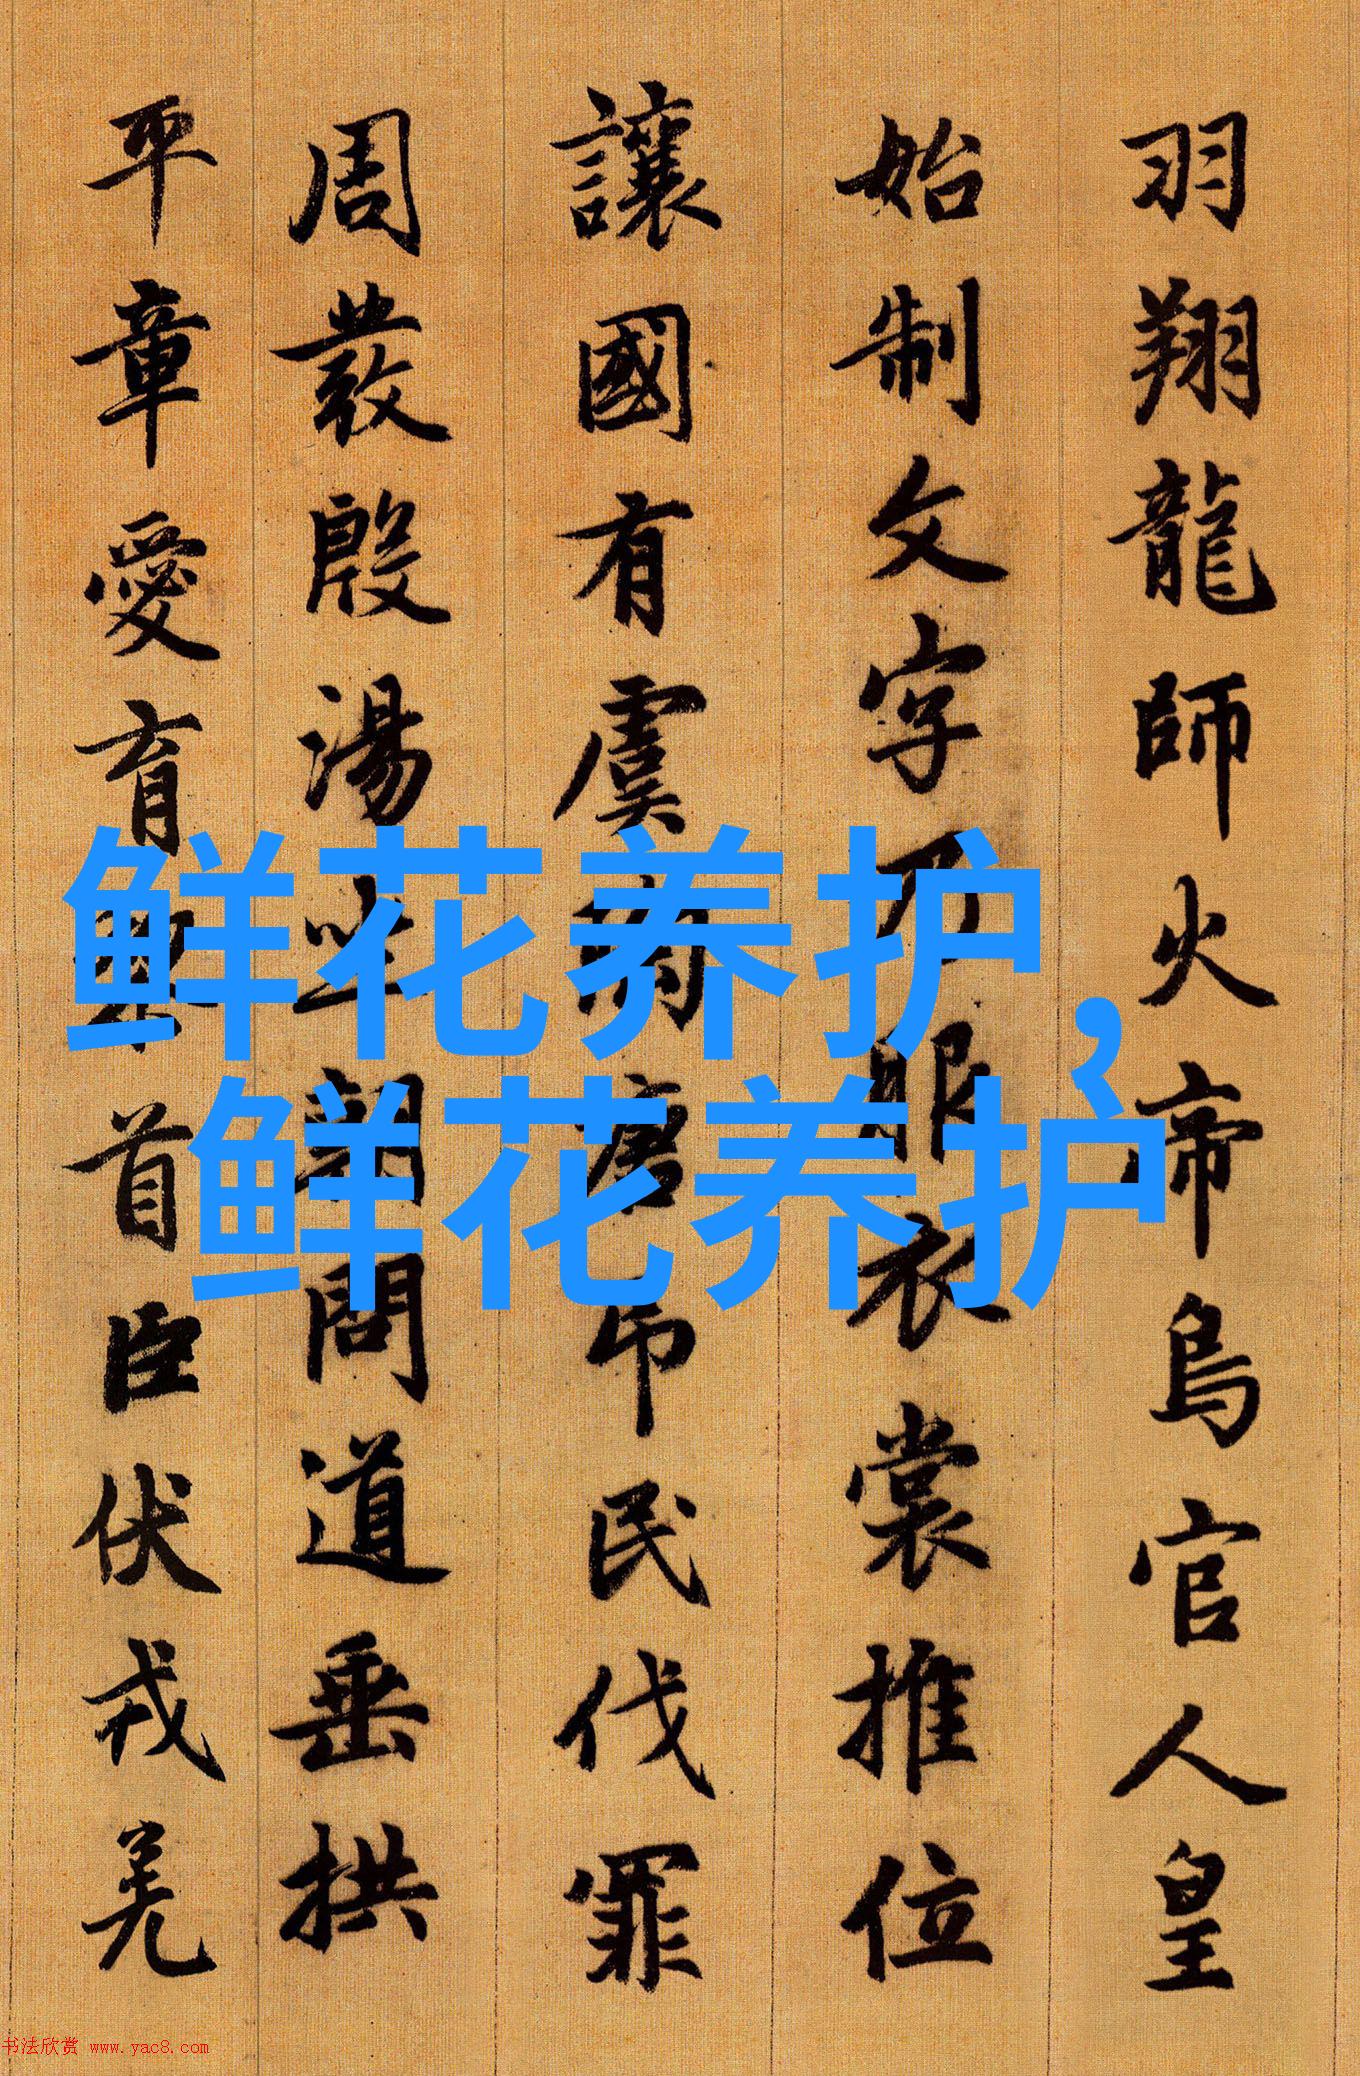 羽翔龍師火帝鳥官人皇
始制文字乃服衣裳推位
讓國有虞陶唐吊民伐罪
周發殷湯坐朝問道垂拱
平章愛育黎首臣伏戎羌
鲜花养护,
鲜花养护
书法欣赏 www.yac8.com